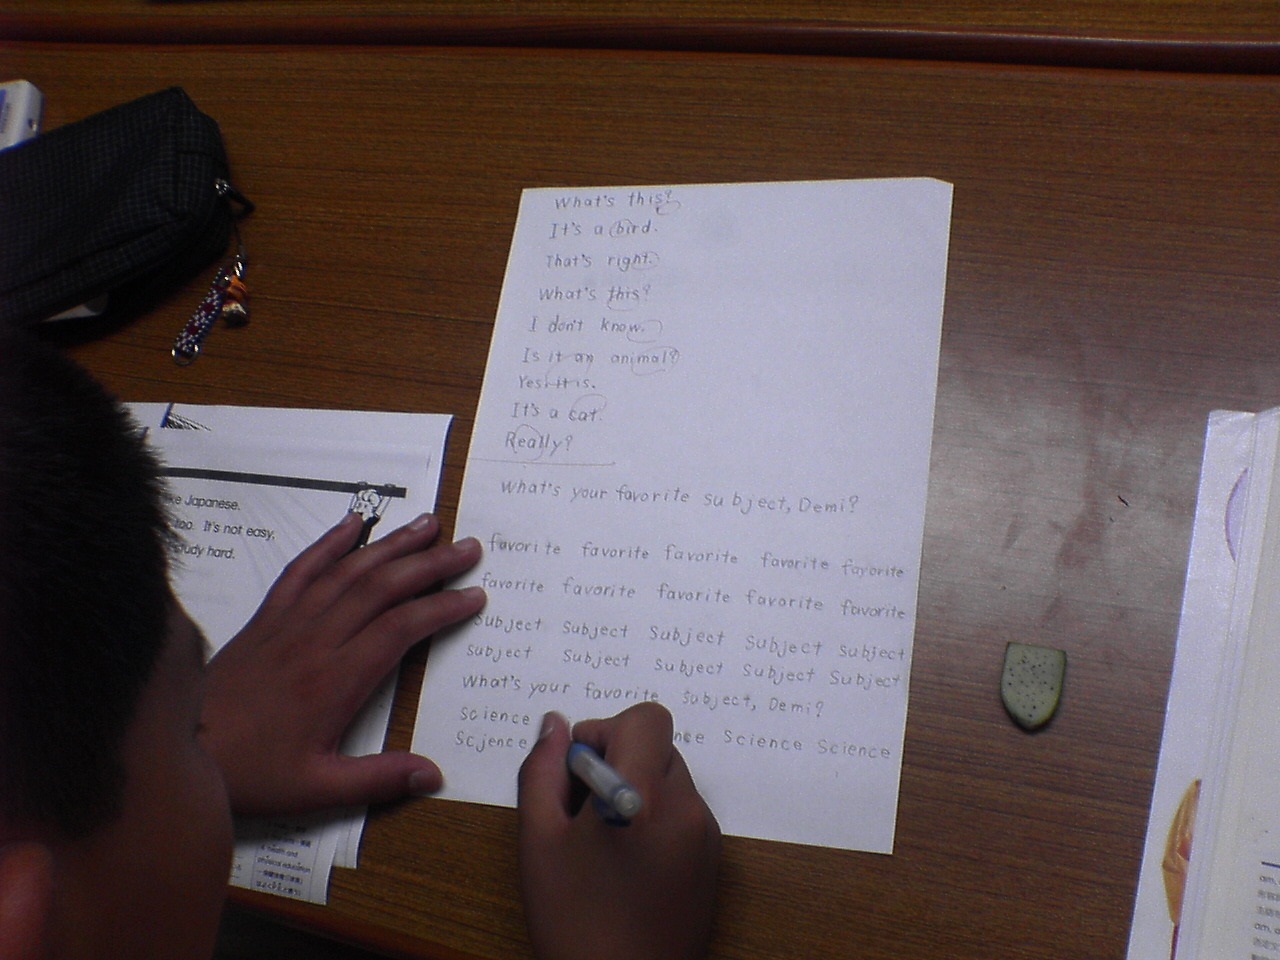 What's this?
It's a bird.
That's right.
What's this?
I don't know.
Is it an animal?
Yes. it is.
It's a cat.
Really?
What's your favorite subject, Demi?
favorite favorite favorite favorite favorite
favorite favorite favorite favorite favorite
Subject Subject Subject Subject Subject
Subject Subject Subject Subject Subject
What's your favorite Subject, Demi?
Science
Science nce Science Science
ke Japanese.
too. It's not easy,
udy hard.
health and
physical education
am,
am. a